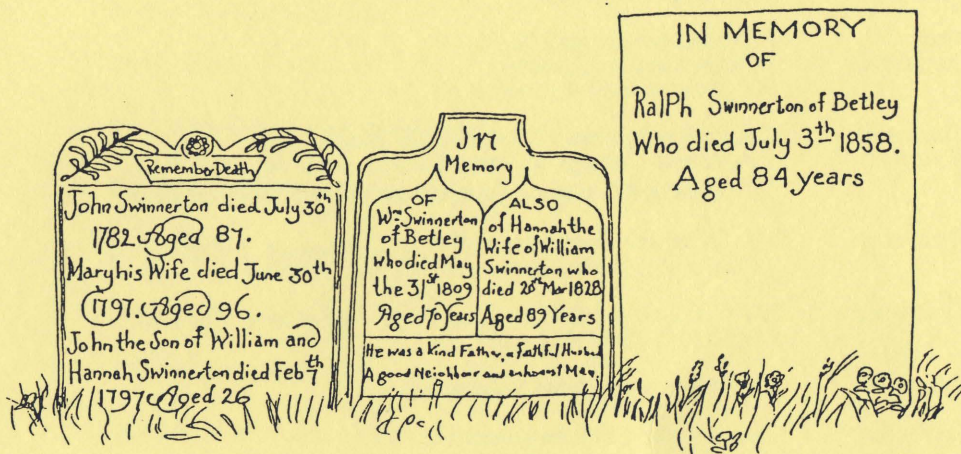 Remember Death
John Swinnerton died July 30th
1782 Aged 87.
Mary his Wife died June 30th
1797. Aged 96.
John the Son of William and
Hannah Swinnerton died Feb 7th
1797 Aged 26
In
Memory
OF
Wm Swinnerton
of Betley
who died May
the 31st 1809
Aged 70 Years
ALSO
of Hannah the
Wife of William
Swinnerton who
died 20th Mar 1828
Aged 89 Years
He was a kind Father, a faithful Husband
A good Neighbour and an honest Man.
IN MEMORY
OF
Ralph Swinnerton of Betley
Who died July 3th 1858.
Aged 84 years